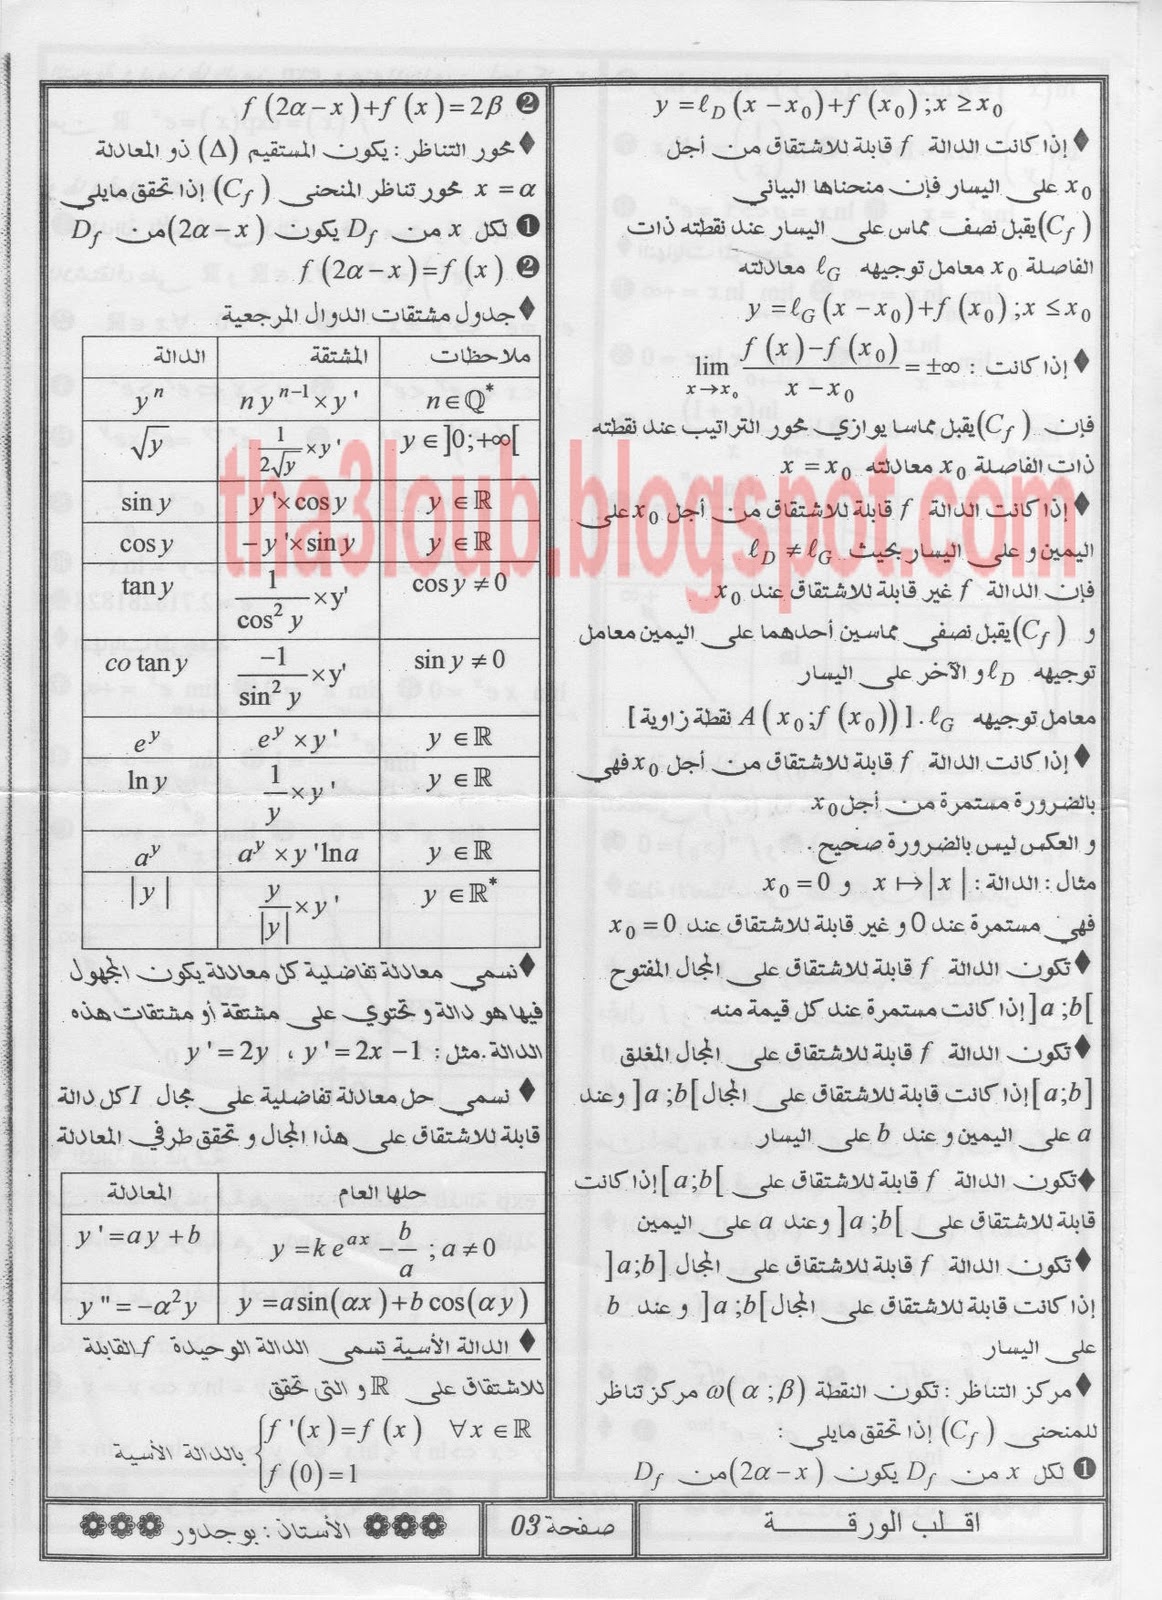 y = ℓ_D (x − x₀) + f (x₀) ; x ≥ x₀
♦ إذا كانت الدالة f قابلة للاشتقاق من أجل
x₀ على اليسار فإن منحناها البياني
(C_f) يقبل نصف مماس على اليسار عند نقطته ذات
الفاصلة x₀ معامل توجيهه ℓ_G معادلته
y = ℓ_G (x − x₀) + f (x₀) ; x ≤ x₀
♦ إذا كانت : lim_{x→x₀} (f (x) − f (x₀))/(x − x₀) = ±∞
فإن (C_f) يقبل مماسا يوازي محور التراتيب عند نقطته
ذات الفاصلة x₀ معادلته x = x₀
♦ إذا كانت الدالة f قابلة للاشتقاق من أجل x₀ على
اليمين و على اليسار بحيث ℓ_D ≠ ℓ_G
فإن الدالة f غير قابلة للاشتقاق عند x₀
و (C_f) يقبل نصفي مماسين أحدهما على اليمين معامل
توجيهه ℓ_D و الآخر على اليسار
معامل توجيهه ℓ_G . [ A(x₀ ; f (x₀)) نقطة زاوية ]
♦ إذا كانت الدالة f قابلة للاشتقاق من أجل x₀ فهي
بالضرورة مستمرة من أجل x₀
و العكس ليس بالضرورة صحيح .
مثال : الدالة : x ↦ |x| و x₀ = 0
فهي مستمرة عند 0 و غير قابلة للاشتقاق عند x₀ = 0
♦ تكون الدالة f قابلة للاشتقاق على المجال المفتوح
]a ;b[ إذا كانت مستمرة عند كل قيمة منه
♦ تكون الدالة f قابلة للاشتقاق على المجال المغلق
[a;b] إذا كانت قابلة للاشتقاق على المجال ]a ;b[ وعند
a على اليمين و عند b على اليسار
♦ تكون الدالة f قابلة للاشتقاق على [a;b[ إذا كانت
قابلة للاشتقاق على ]a ;b[ وعند a على اليمين
♦ تكون الدالة f قابلة للاشتقاق على المجال ]a;b]
إذا كانت قابلة للاشتقاق على المجال ]a ;b[ و عند b
على اليسار
♦ مركز التناظر : تكون النقطة ω(α ; β) مركز تناظر
للمنحنى (C_f) إذا تحقق مايلي :
❶ لكل x من D_f يكون (2α − x) من D_f
❷ f (2α − x) + f (x) = 2β
♦ محور التناظر : يكون المستقيم (Δ) ذو المعادلة
x = α محور تناظر المنحنى (C_f) إذا تحقق مايلي
❶ لكل x من D_f يكون (2α − x) من D_f
❷ f (2α − x) = f (x)
♦ جدول مشتقات الدوال المرجعية
الدالة المشتقة ملاحظات
yⁿ n yⁿ⁻¹ × y ' n ∈ ℚ*
√y 1/(2√y) × y' y ∈ ]0;+∞[
sin y y ' × cos y y ∈ ℝ
cos y − y ' × sin y y ∈ ℝ
tan y 1/cos² y × y' cos y ≠ 0
co tan y −1/sin² y × y' sin y ≠ 0
e^y e^y × y ' y ∈ ℝ
ln y 1/y × y ' y ∈ ℝ
a^y a^y × y ' ln a y ∈ ℝ
| y | y/|y| × y ' y ∈ ℝ*
♦ نسمي معادلة تفاضلية كل معادلة يكون المجهول
فيها هو دالة و تحتوي على مشتقة أو مشتقات هذه
الدالة . مثل : y ' = 2x − 1 ، y ' = 2y
♦ نسمي حل معادلة تفاضلية على مجال I كل دالة
قابلة للاشتقاق على هذا المجال و تحقق طرفي المعادلة
المعادلة حلها العام
y ' = ay + b y = k e^{ax} − b/a ; a ≠ 0
y " = −α² y y = a sin(αx) + b cos(αy)
♦ الدالة الأسية تسمى الدالة الوحيدة f القابلة
للاشتقاق على ℝ و التي تحقق
{ f '(x) = f (x) ∀x ∈ ℝ
f (0) = 1 بالدالة الأسية
اقلب الورقة
صفحة 03
الأستاذ : بوجدور
tha3loub.blogspot.com